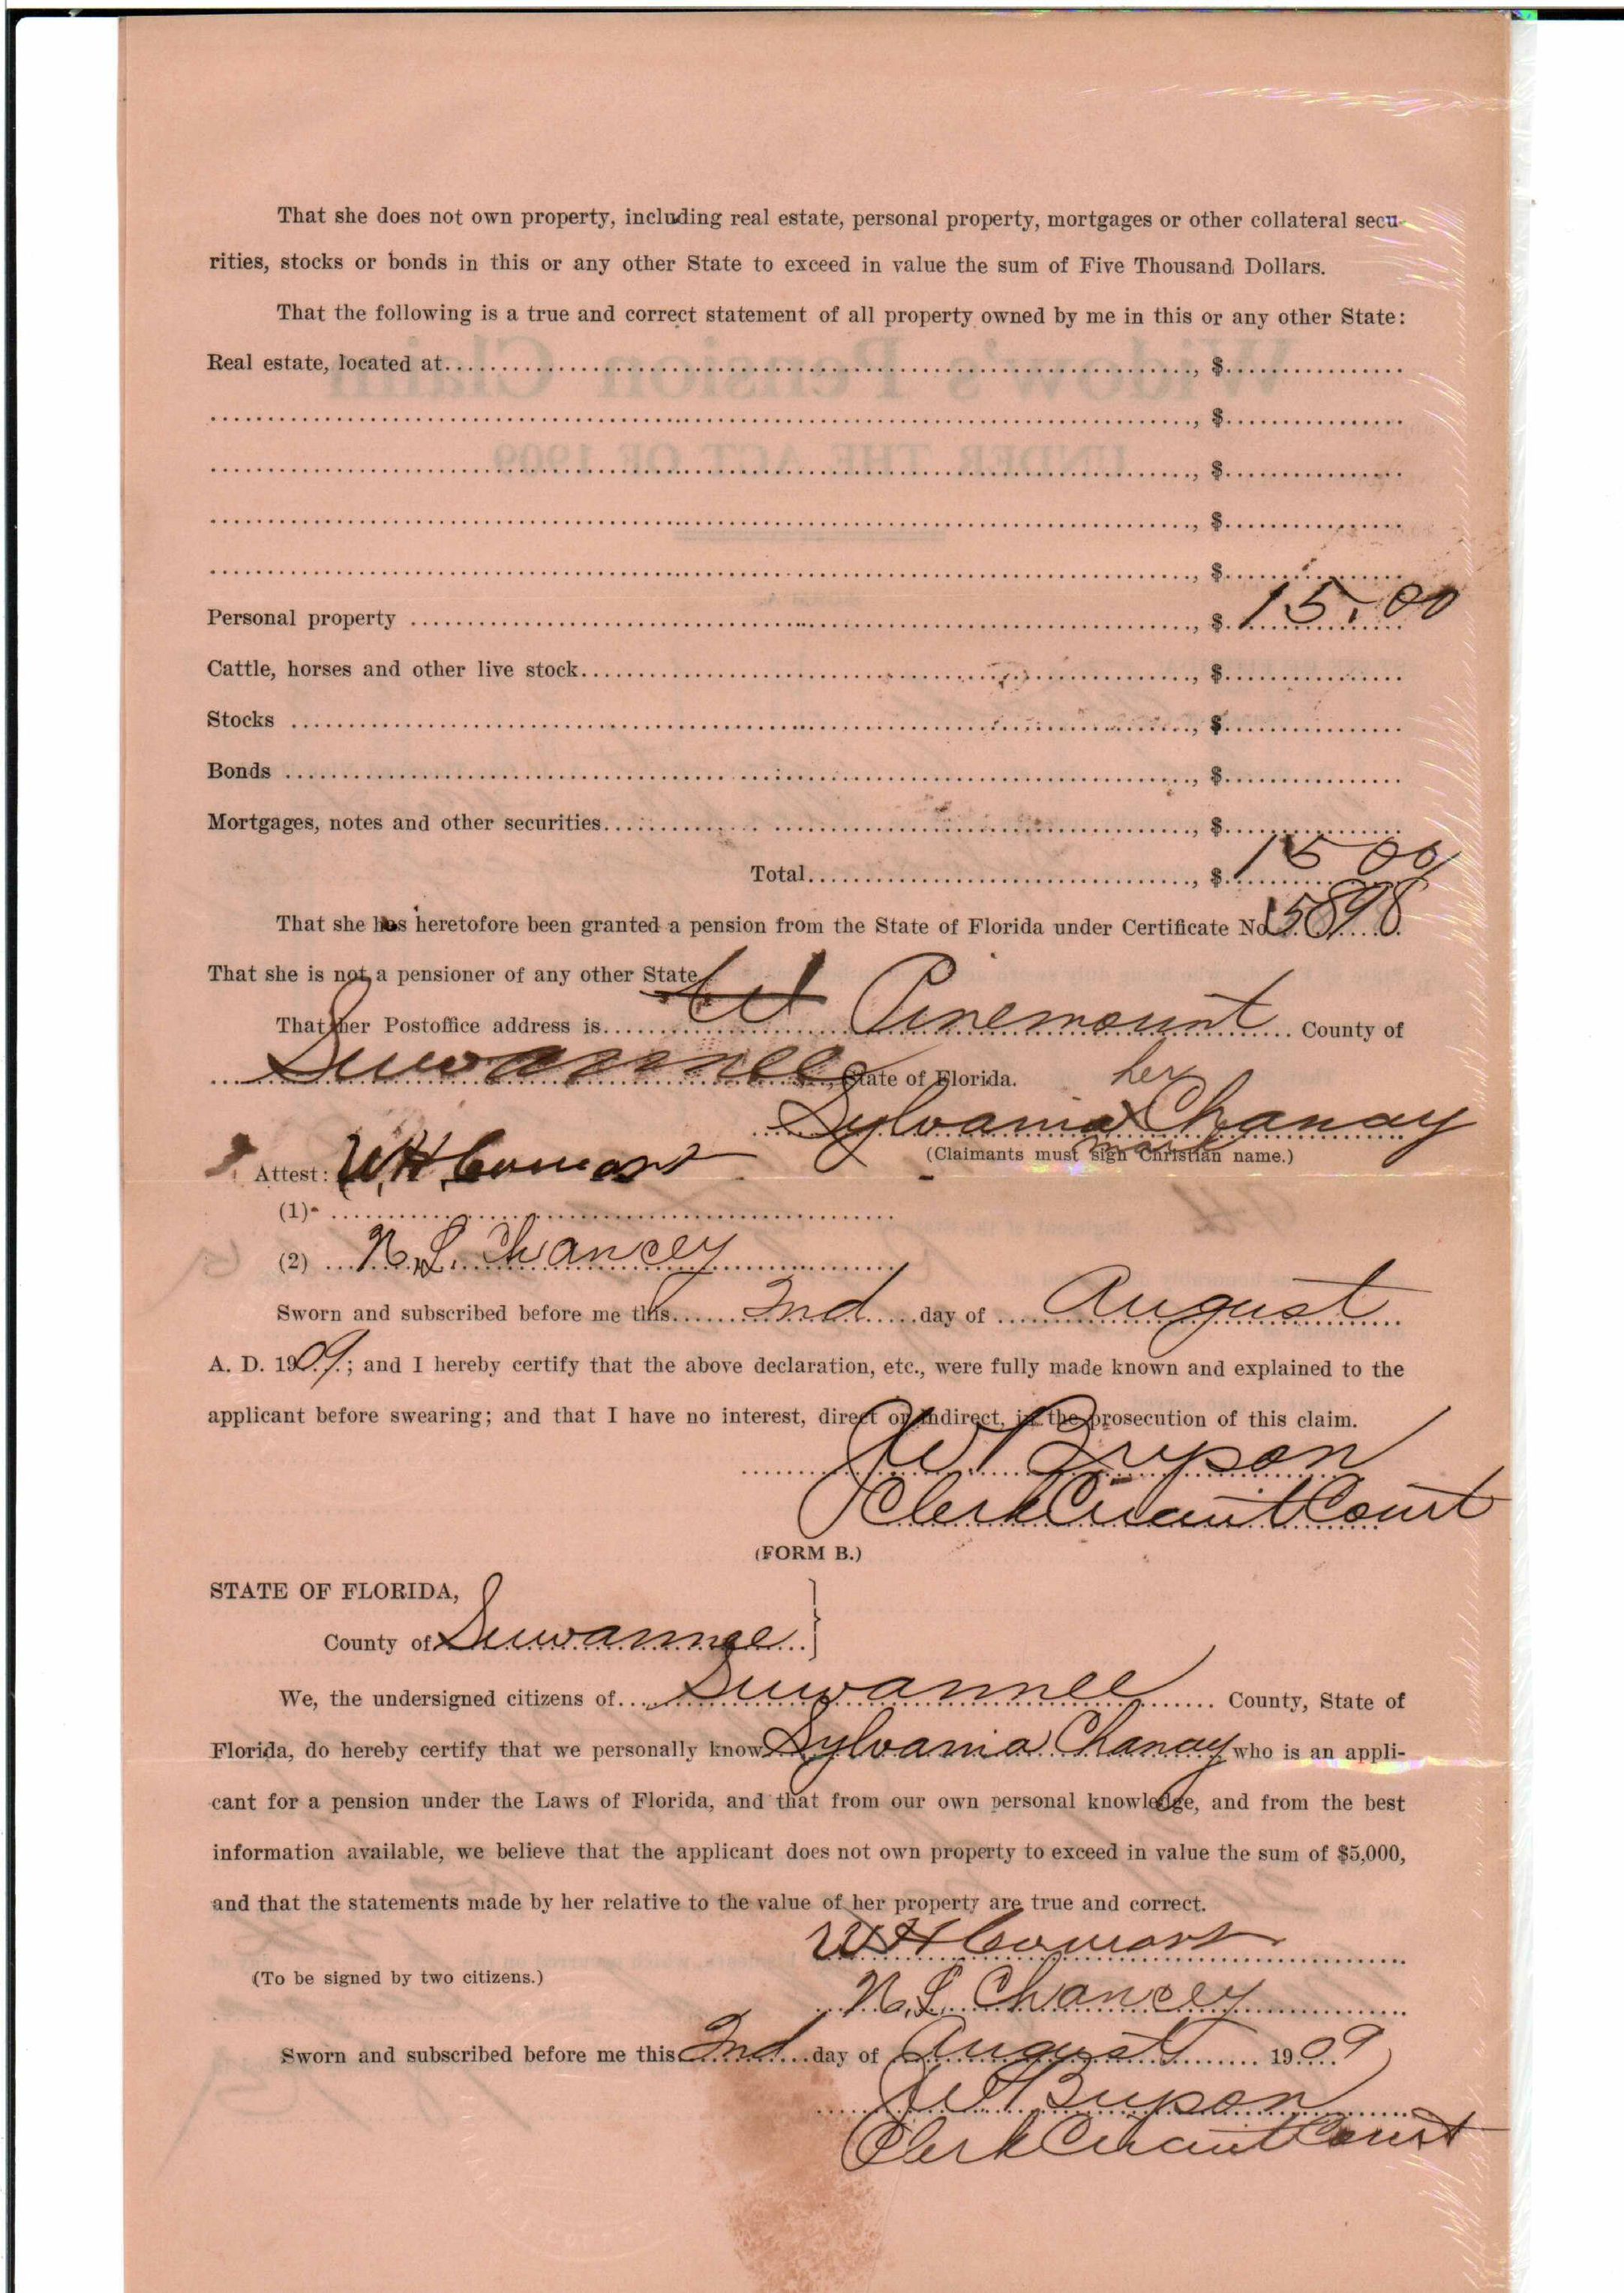 That she does not own property, including real estate, personal property, mortgages or other collateral secu-
rities, stocks or bonds in this or any other State to exceed in value the sum of Five Thousand Dollars.
That the following is a true and correct statement of all property owned by me in this or any other State:
Real estate, located at..., $...
..., $...
..., $...
..., $...
..., $...
Personal property ..., $ 15.00
Cattle, horses and other live stock..., $...
Stocks ..., $...
Bonds ..., $...
Mortgages, notes and other securities..., $...
Total..., $ 15 00
That she has heretofore been granted a pension from the State of Florida under Certificate No. 5898
That she is not a pensioner of any other State
That her Postoffice address is... Pinemount ... County of
Suwannee, State of Florida.
her
Sylvania x Chancy
mark
(Claimants must sign Christian name.)
Attest: W.H.
(1) ...
(2) N.L. Chancey
Sworn and subscribed before me this 2nd day of August
A. D. 1909; and I hereby certify that the above declaration, etc., were fully made known and explained to the
applicant before swearing; and that I have no interest, direct or indirect, in the prosecution of this claim.
Clerk Circuit Court
(FORM B.)
STATE OF FLORIDA,
County of Suwannee
We, the undersigned citizens of Suwannee County, State of
Florida, do hereby certify that we personally know Sylvania Chancy who is an appli-
cant for a pension under the Laws of Florida, and that from our own personal knowledge, and from the best
information available, we believe that the applicant does not own property to exceed in value the sum of $5,000,
and that the statements made by her relative to the value of her property are true and correct.
W H
(To be signed by two citizens.)
N.L. Chancey
Sworn and subscribed before me this 2nd day of August 1909
Clerk Circuit Court